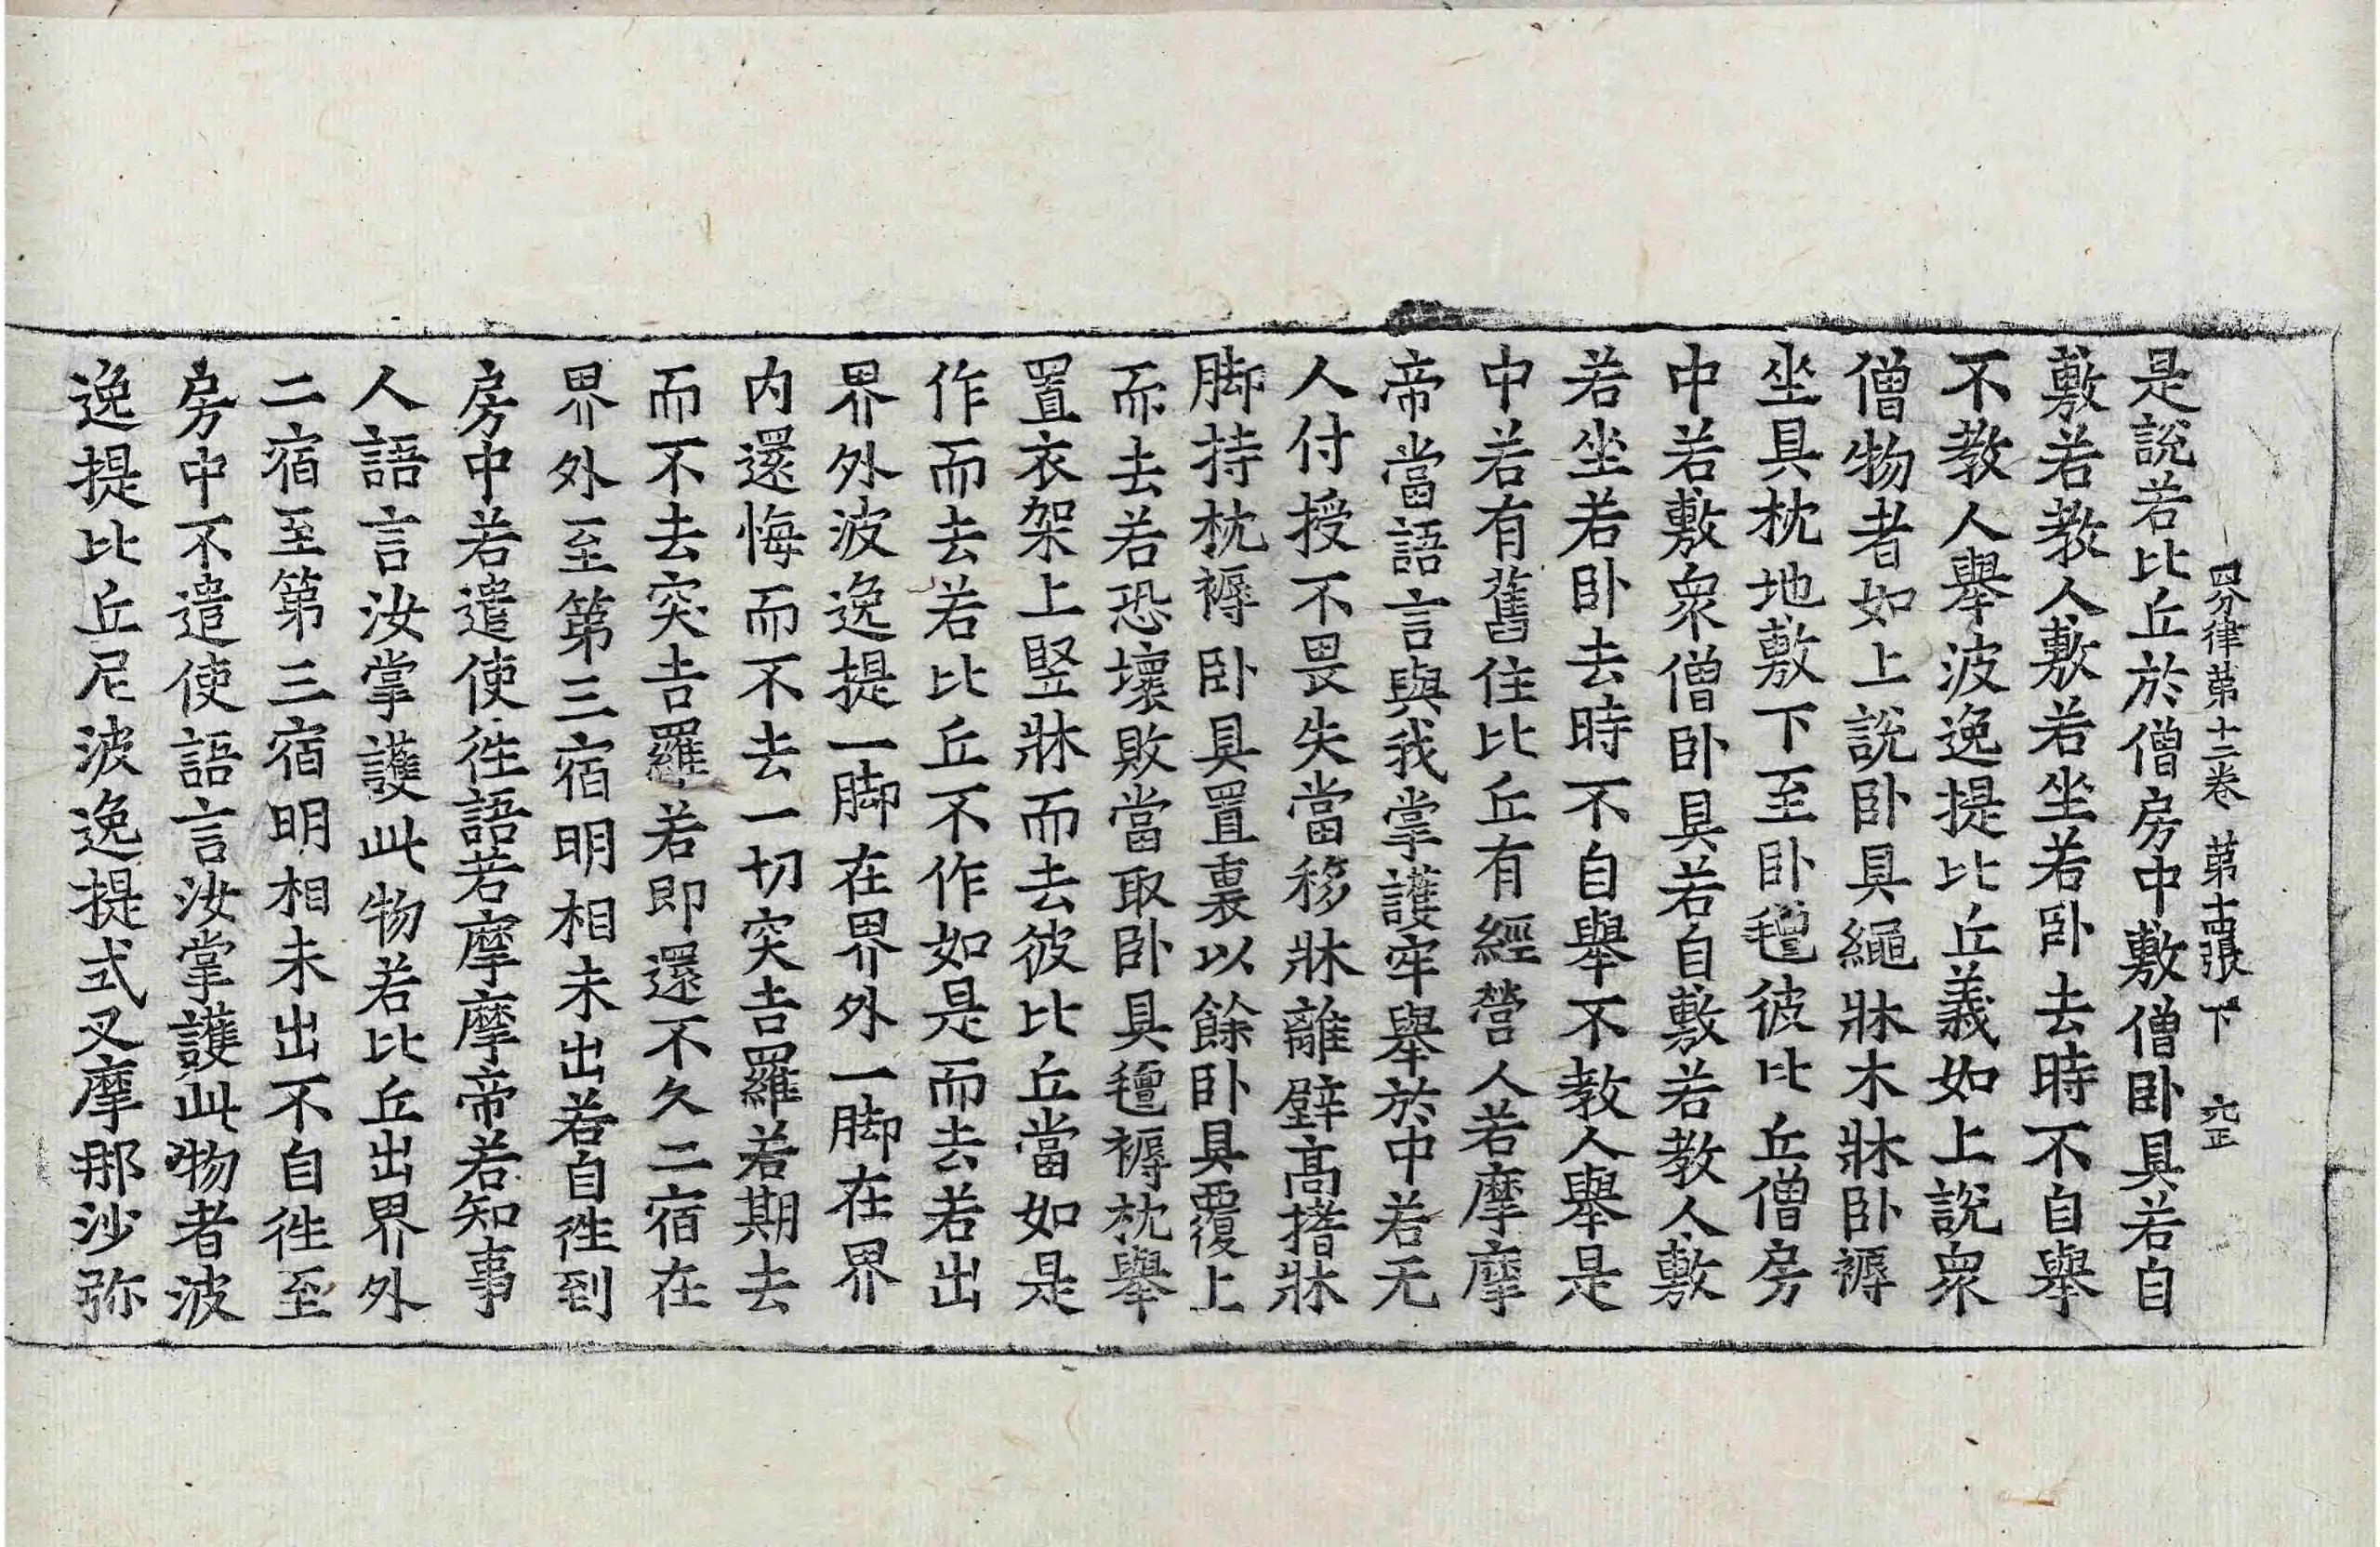 四分律第十二卷 第十四張 下
是說若比丘於僧房中敷僧卧具若自
敷若教人敷若坐若卧去時不自舉
不教人舉波逸提比丘義如上說衆
僧物者如上說卧具繩牀木牀卧褥
坐具枕地敷下至卧氊彼比丘僧房
中若敷衆僧卧具若自敷若教人敷
若坐若卧去時不自舉不教人舉是
中若有舊住比丘有經營人若摩摩
帝當語言與我掌護牢舉於中若无
人付授不畏失當移牀離壁高揩牀
脚持枕褥卧具置裏以餘卧具覆上
而去若恐壞敗當取卧具氊褥枕舉
置衣架上竪牀而去彼比丘當如是
作而去若比丘不作如是而去若出
界外波逸提一脚在界外一脚在界
内還悔而不去一切突吉羅若期去
而不去突吉羅若即還不久二宿在
界外至第三宿明相未出若自徃到
房中若遣使徃語若摩摩帝若知事
人語言汝掌護此物若比丘出界外
二宿至第三宿明相未出不自徃至
房中不遣使語言汝掌護此物者波
逸提比丘尼波逸提式叉摩那沙弥